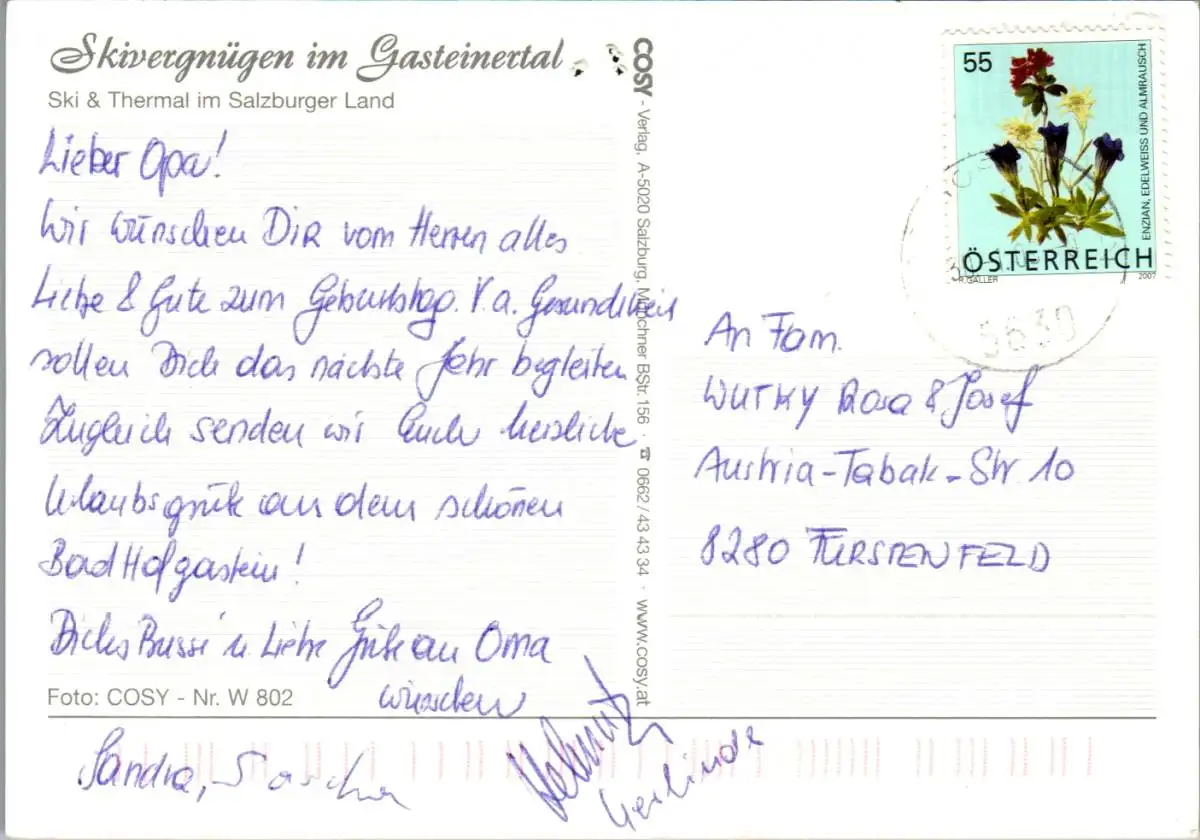 Skivergnügen im Gasteinertal
Ski & Thermal im Salzburger Land
Lieber Opa!
Wir wünschen Dir vom Herzen alles
Liebe & Gute zum Geburtstag. V. a. Gesundheit
sollen Dich das nächste Jahr begleiten
Zugleich senden wir Euch herzliche
Urlaubsgrüße aus dem schönen
Bad Hofgastein!
Dickes Bussi u Liebe Grüße an Oma
wünschen
Foto: COSY - Nr. W 802
Sandra, Sascha
Helmut
Gerlinde
COSY - Verlag, A-5020 Salzburg, Münchner BStr. 156 · ☎ 0662/43 43 34 · www.cosy.at
55
ENZIAN, EDELWEISS UND ALMRAUSCH
ÖSTERREICH
R. GALLER
2007
5630
An Fam.
WUTKY Rosa & Josef
Austria-Tabak-Str 10
8280 FÜRSTENFELD